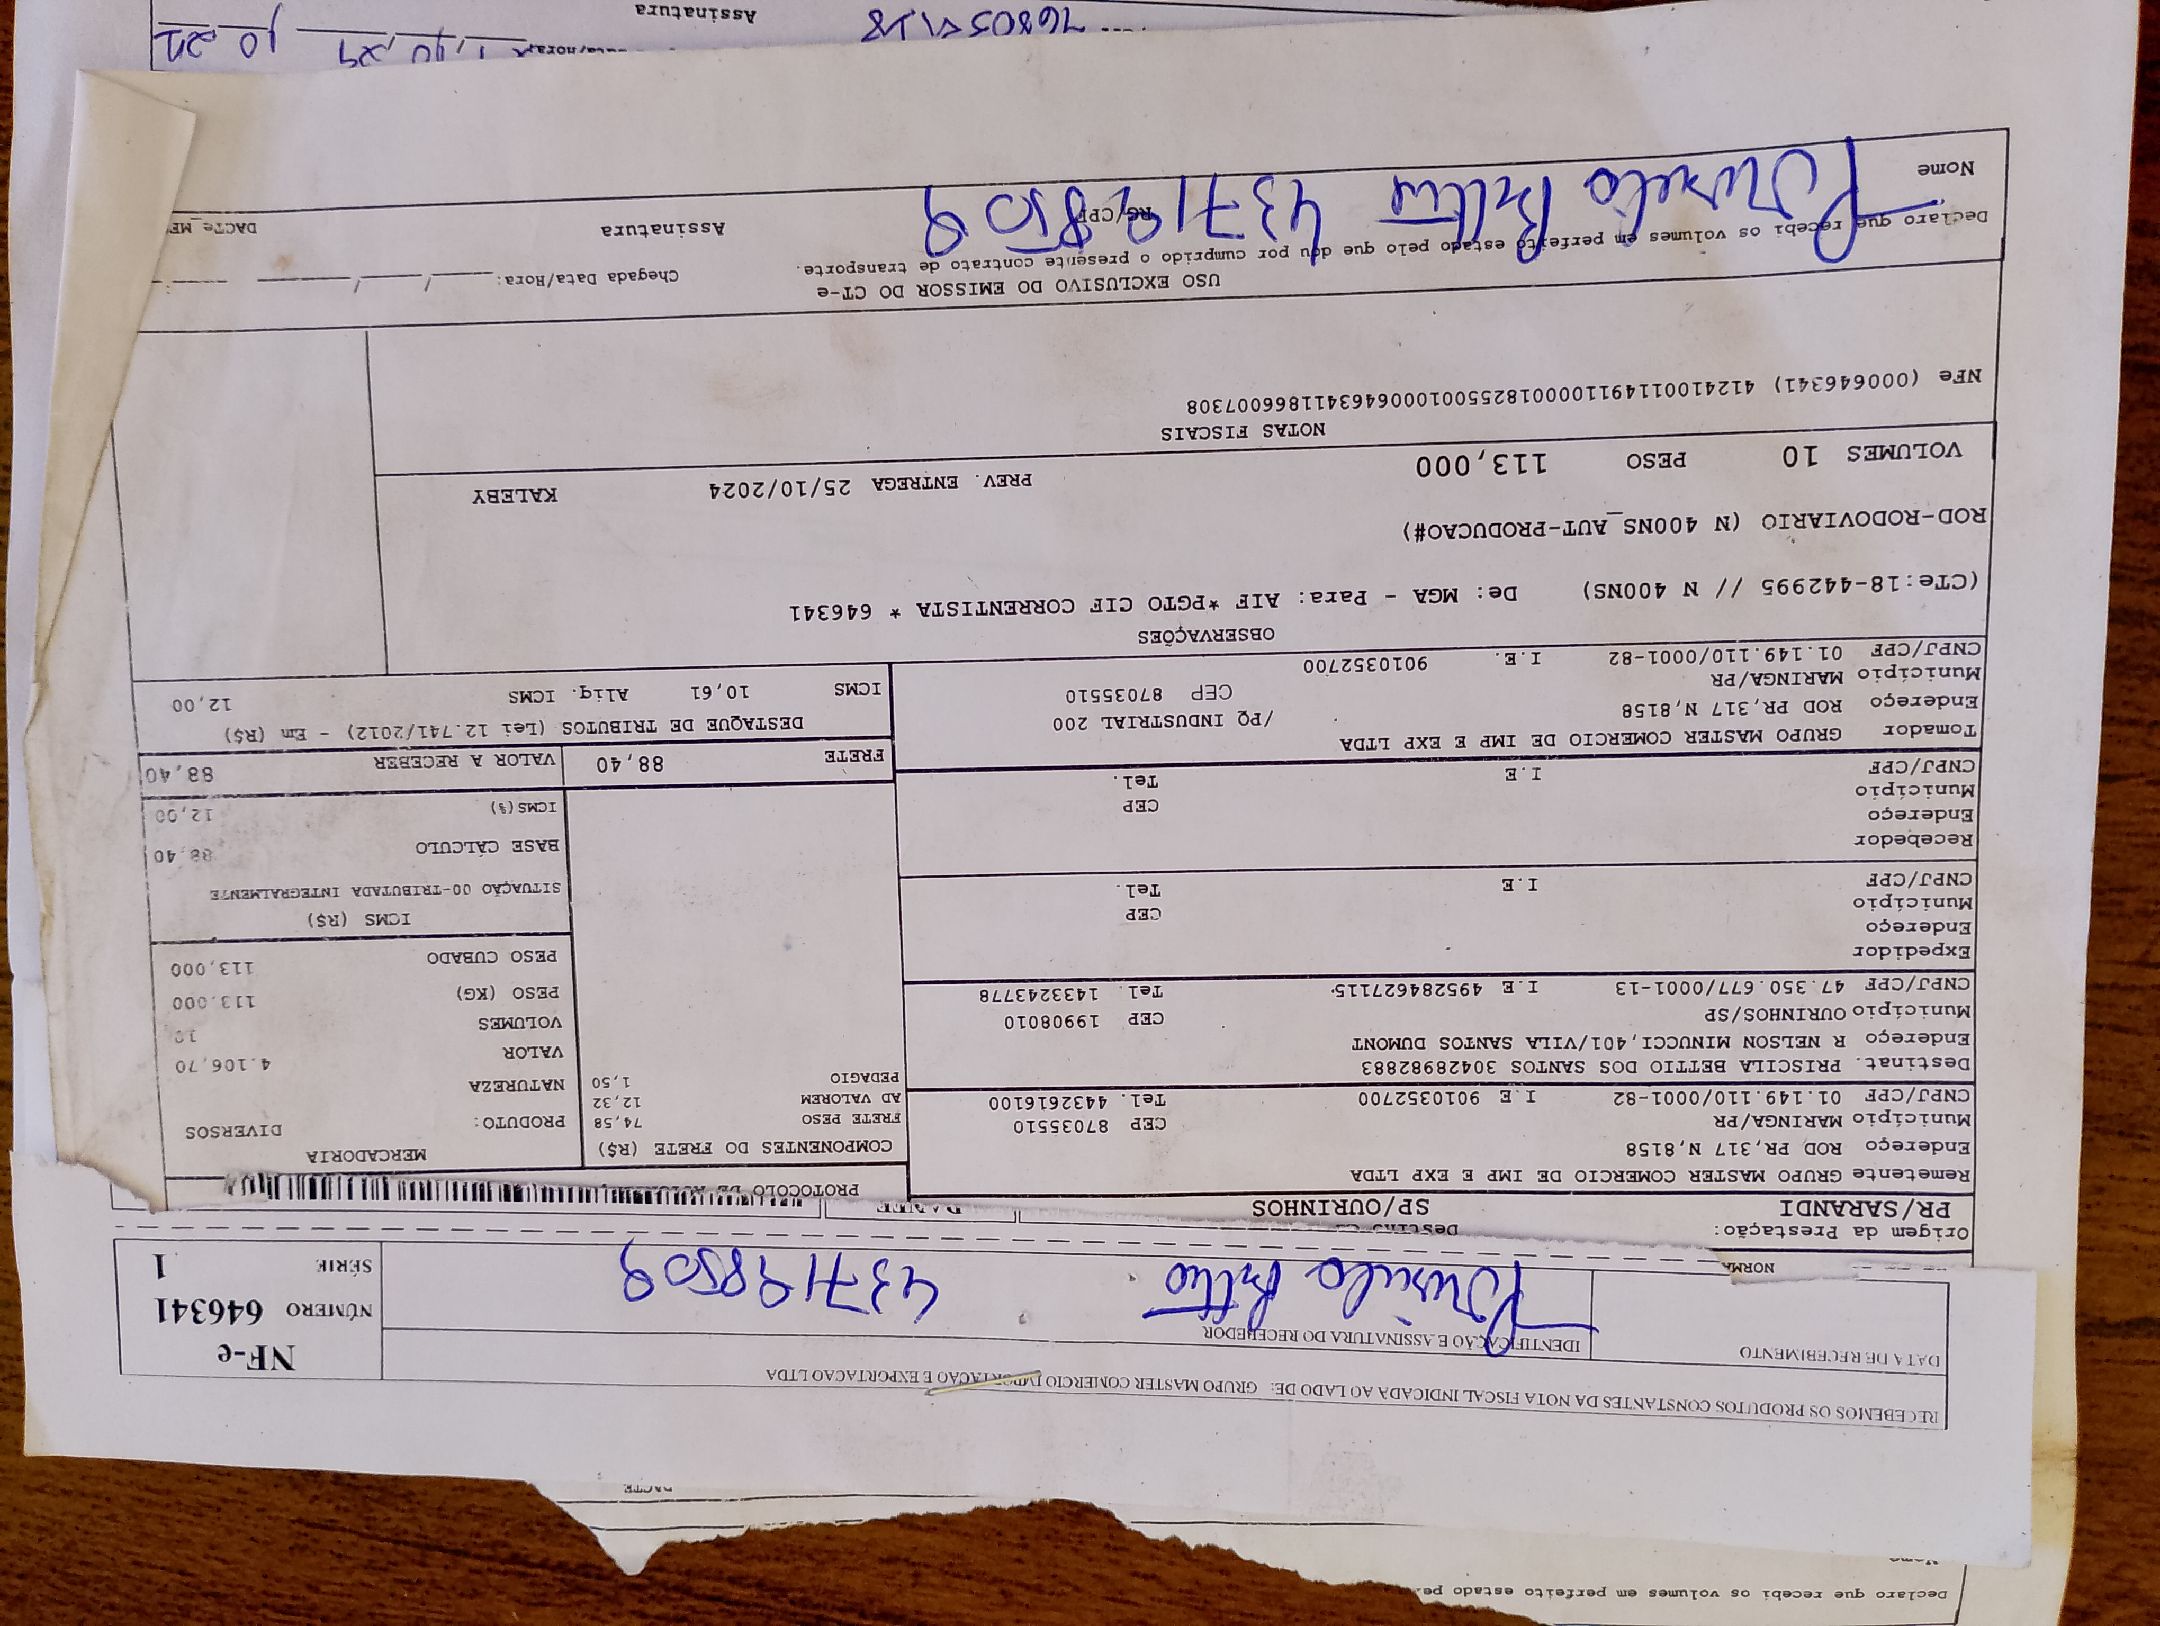 Declaro que recebi os volumes em perfeito estado pe
DACTE
RECEBEMOS OS PRODUTOS CONSTANTES DA NOTA FISCAL INDICADA AO LADO DE: GRUPO MASTER COMERCIO IMPORTACAO E EXPORTACAO LTDA
DATA DE RECEBIMENTO
IDENTIFICAÇÃO E ASSINATURA DO RECEBEDOR
437198509
NF-e
NÚMERO 646341
SÉRIE 1
NORMA
Origem da Prestação:
PR/SARANDI
SP/OURINHOS
Remetente GRUPO MASTER COMERCIO DE IMP E EXP LTDA
Endereço ROD PR,317 N,8158
Município MARINGA/PR CEP 87035510
CNPJ/CPF 01.149.110/0001-82 I.E 9010352700 Tel. 4432616100
Destinat. PRISCILA BETTIO DOS SANTOS 30428982883
Endereço R NELSON MINUCCI,401/VILA SANTOS DUMONT
Município OURINHOS/SP CEP 19908010
CNPJ/CPF 47.350.677/0001-13 I.E 495284627115 Tel. 1433243778
Expedidor
Endereço
Município CEP
CNPJ/CPF I.E Tel.
Recebedor
Endereço
Município CEP
CNPJ/CPF I.E Tel.
Tomador GRUPO MASTER COMERCIO DE IMP E EXP LTDA
Endereço ROD PR,317 N,8158 /PQ INDUSTRIAL 200
Município MARINGA/PR CEP 87035510
CNPJ/CPF 01.149.110/0001-82 I.E. 9010352700
PROTOCOLO DE
COMPONENTES DO FRETE (R$)
FRETE PESO 74,58
AD VALOREM 12,32
PEDAGIO 1,50
MERCADORIA
PRODUTO: DIVERSOS
NATUREZA
VALOR 4.106,70
VOLUMES 10
PESO (KG) 113.000
PESO CUBADO 113,000
ICMS (R$)
SITUAÇÃO 00-TRIBUTADA INTEGRALMENTE
BASE CÁLCULO 88,40
ICMS(%) 12,00
FRETE 88,40 VALOR A RECEBER 88,40
DESTAQUE DE TRIBUTOS (Lei 12.741/2012) - Em (R$)
ICMS 10,61 Aliq. ICMS 12,00
OBSERVAÇÕES
(CTe:18-442995 // N 400NS) De: MGA - Para: AIF *PGTO CIF CORRENTISTA * 646341
ROD-RODOVIARIO (N 400NS_AUT-PRODUCAO#)
VOLUMES 10 PESO 113,000 PREV. ENTREGA 25/10/2024 KALEBY
NOTAS FISCAIS
NFe (000646341) 41241001149110000182550010006463411866007308
USO EXCLUSIVO DO EMISSOR DO CT-e
Declaro que recebi os volumes em perfeito estado pelo que dou por cumprido o presente contrato de transporte.
Chegada Data/Hora: / /
Nome
RG/CPF
437198509
Assinatura
DACTe_ME
Assinatura